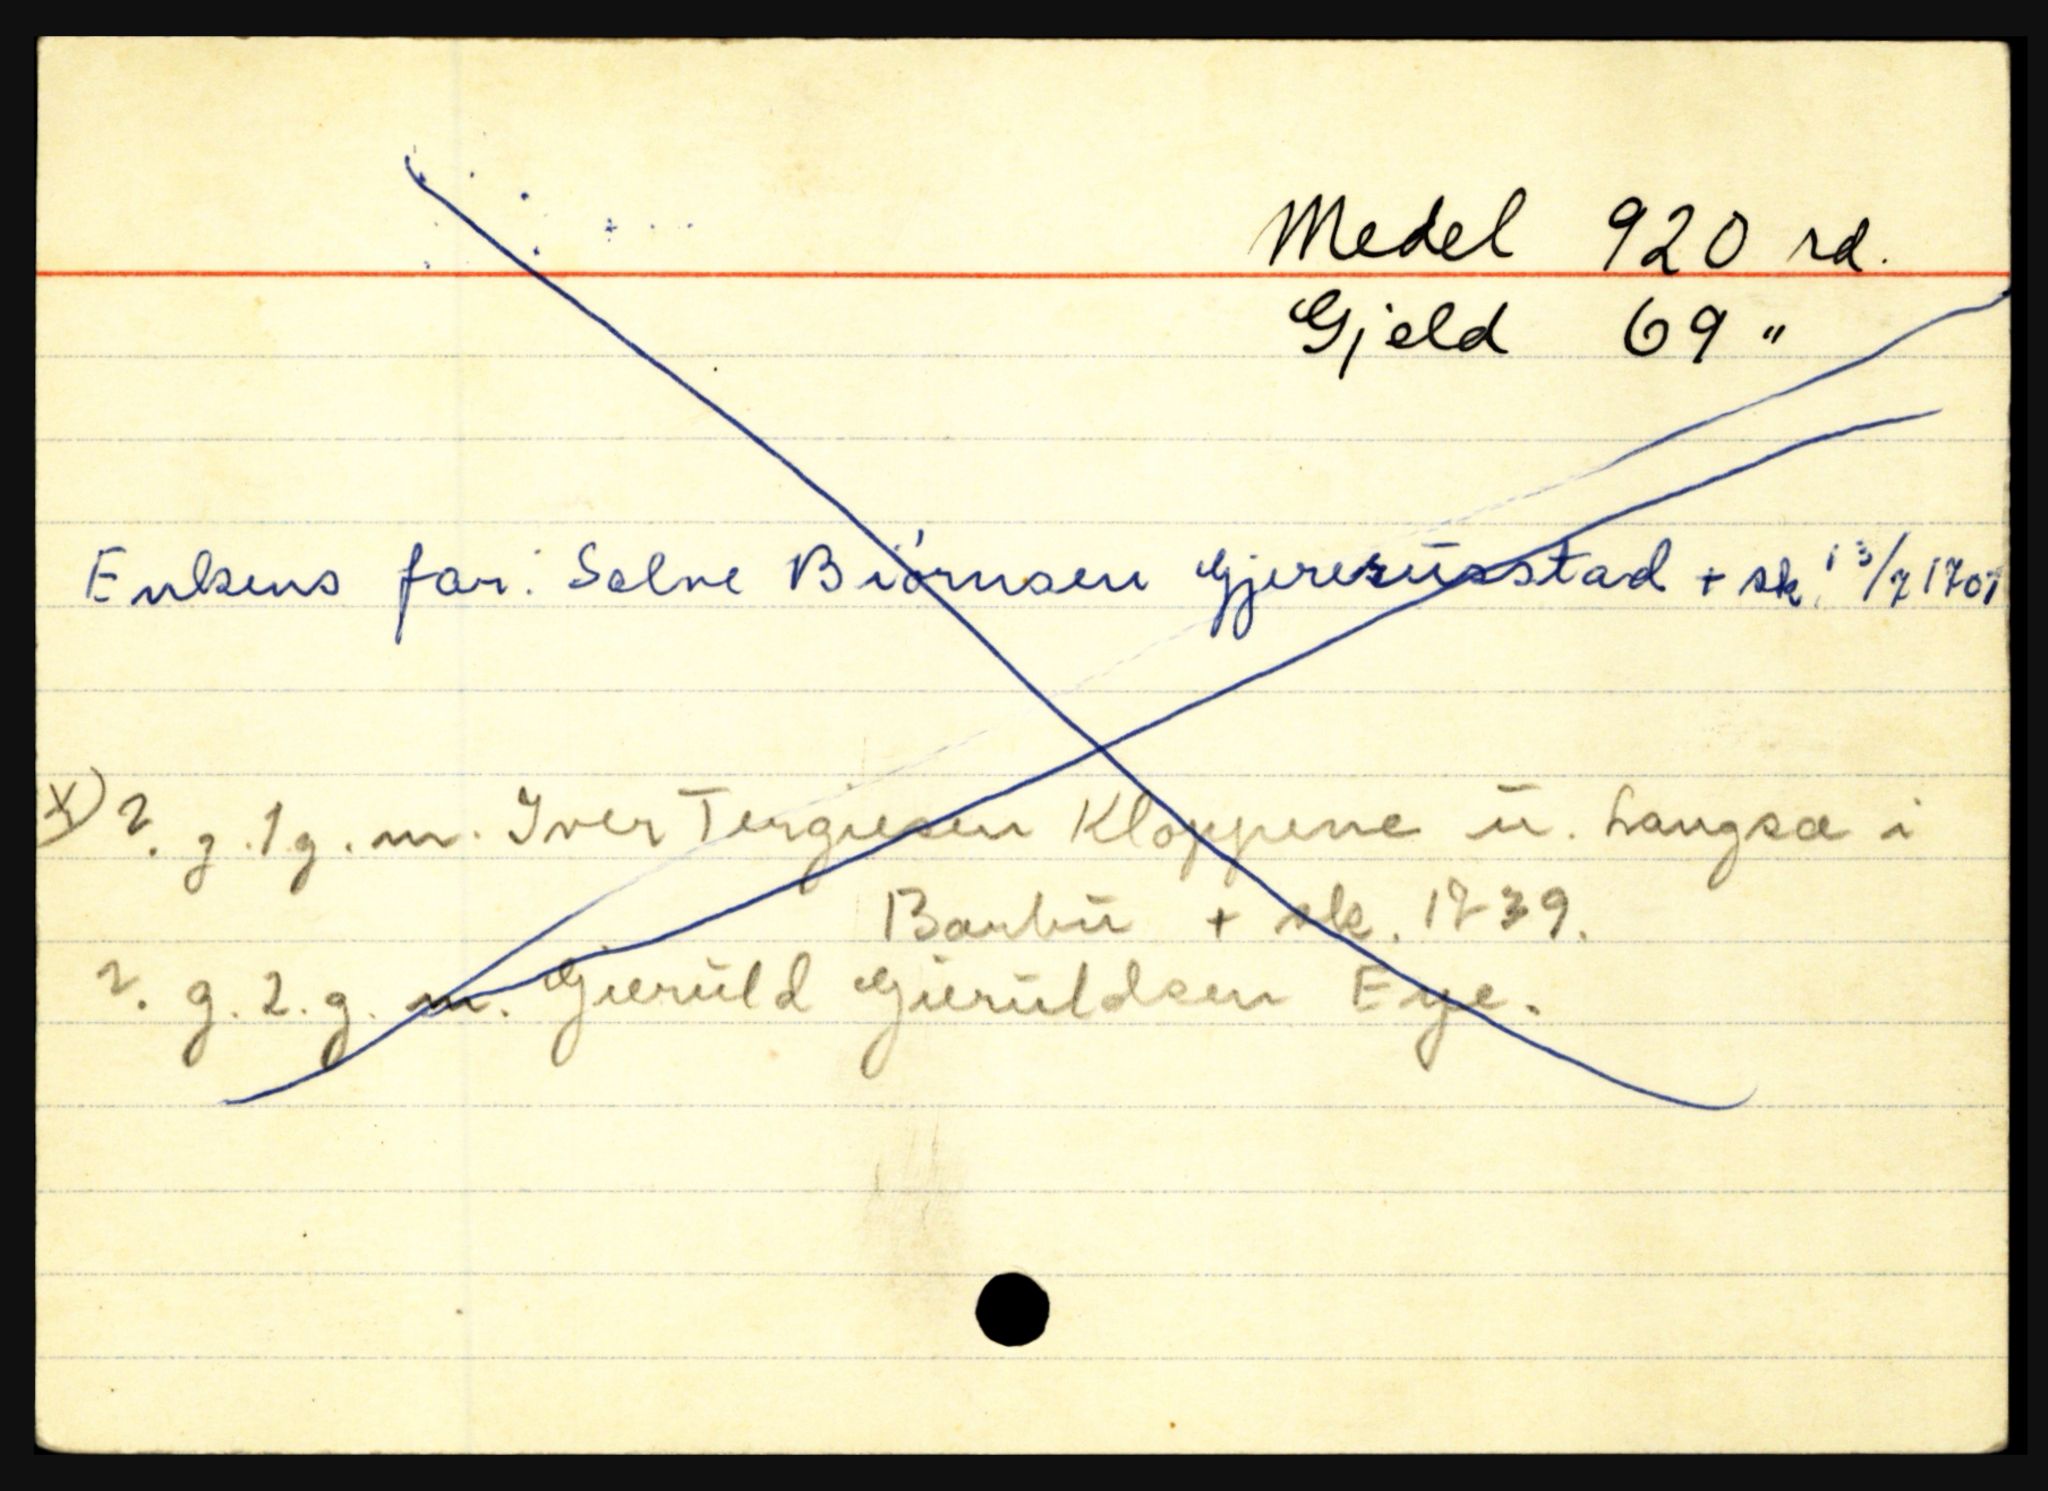 Medel 920 rd.
Gjeld 69 "
Enkens far: Salve Biørnsen Gjererüsstad + sk. 13/7 1701
x) ? . g. 1 g. m. Iver Tergiesen Kloppene ü. Langsæ i
Barbü + sk. 1739.
? . g. 2. g. m. Gierüld Gierüldsen Eye.